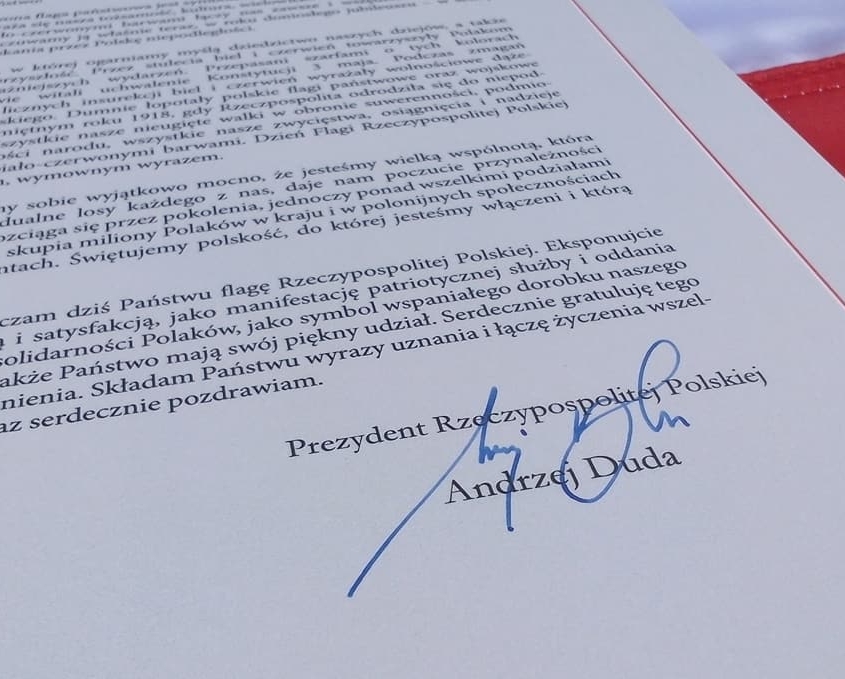 flaga państwowa jest
się nasza tożsamość, kultura,
czerwonymi barwami łączy nas zawsze i
ją właśnie teraz, w roku doniosłego jubileuszu – w
przez Polskę niepodległości.
w której ogarniamy myślą dziedzictwo naszych dziejów, a także
Przez stulecia biel i czerwień towarzyszyły Polakom
wydarzeń. Przepasani szarfami o tych kolorach
witali uchwalenie Konstytucji 3 maja. Podczas zmagań
licznych insurekcji biel i czerwień wyrażały wolnościowe dąże-
skiego. Dumnie łopotały polskie flagi państwowe oraz wojskowe
roku 1918, gdy Rzeczpospolita odrodziła się do niepod-
nasze nieugięte walki w obronie suwerenności, podmio-
ści narodu, wszystkie nasze zwycięstwa, osiągnięcia i nadzieje
iało-czerwonymi barwami. Dzień Flagi Rzeczypospolitej Polskiej
, wymownym wyrazem.
my sobie wyjątkowo mocno, że jesteśmy wielką wspólnotą, która
dualne losy każdego z nas, daje nam poczucie przynależności
ozciąga się przez pokolenia, jednoczy ponad wszelkimi podziałami
skupia miliony Polaków w kraju i w polonijnych społecznościach
ntach. Świętujemy polskość, do której jesteśmy włączeni i którą
czam dziś Państwu flagę Rzeczypospolitej Polskiej. Eksponujcie
ą i satysfakcją, jako manifestację patriotycznej służby i oddania
solidarności Polaków, jako symbol wspaniałego dorobku naszego
akże Państwo mają swój piękny udział. Serdecznie gratuluję tego
nienia. Składam Państwu wyrazy uznania i łączę życzenia wszel-
az serdecznie pozdrawiam.
Prezydent Rzeczypospolitej Polskiej
Andrzej Duda